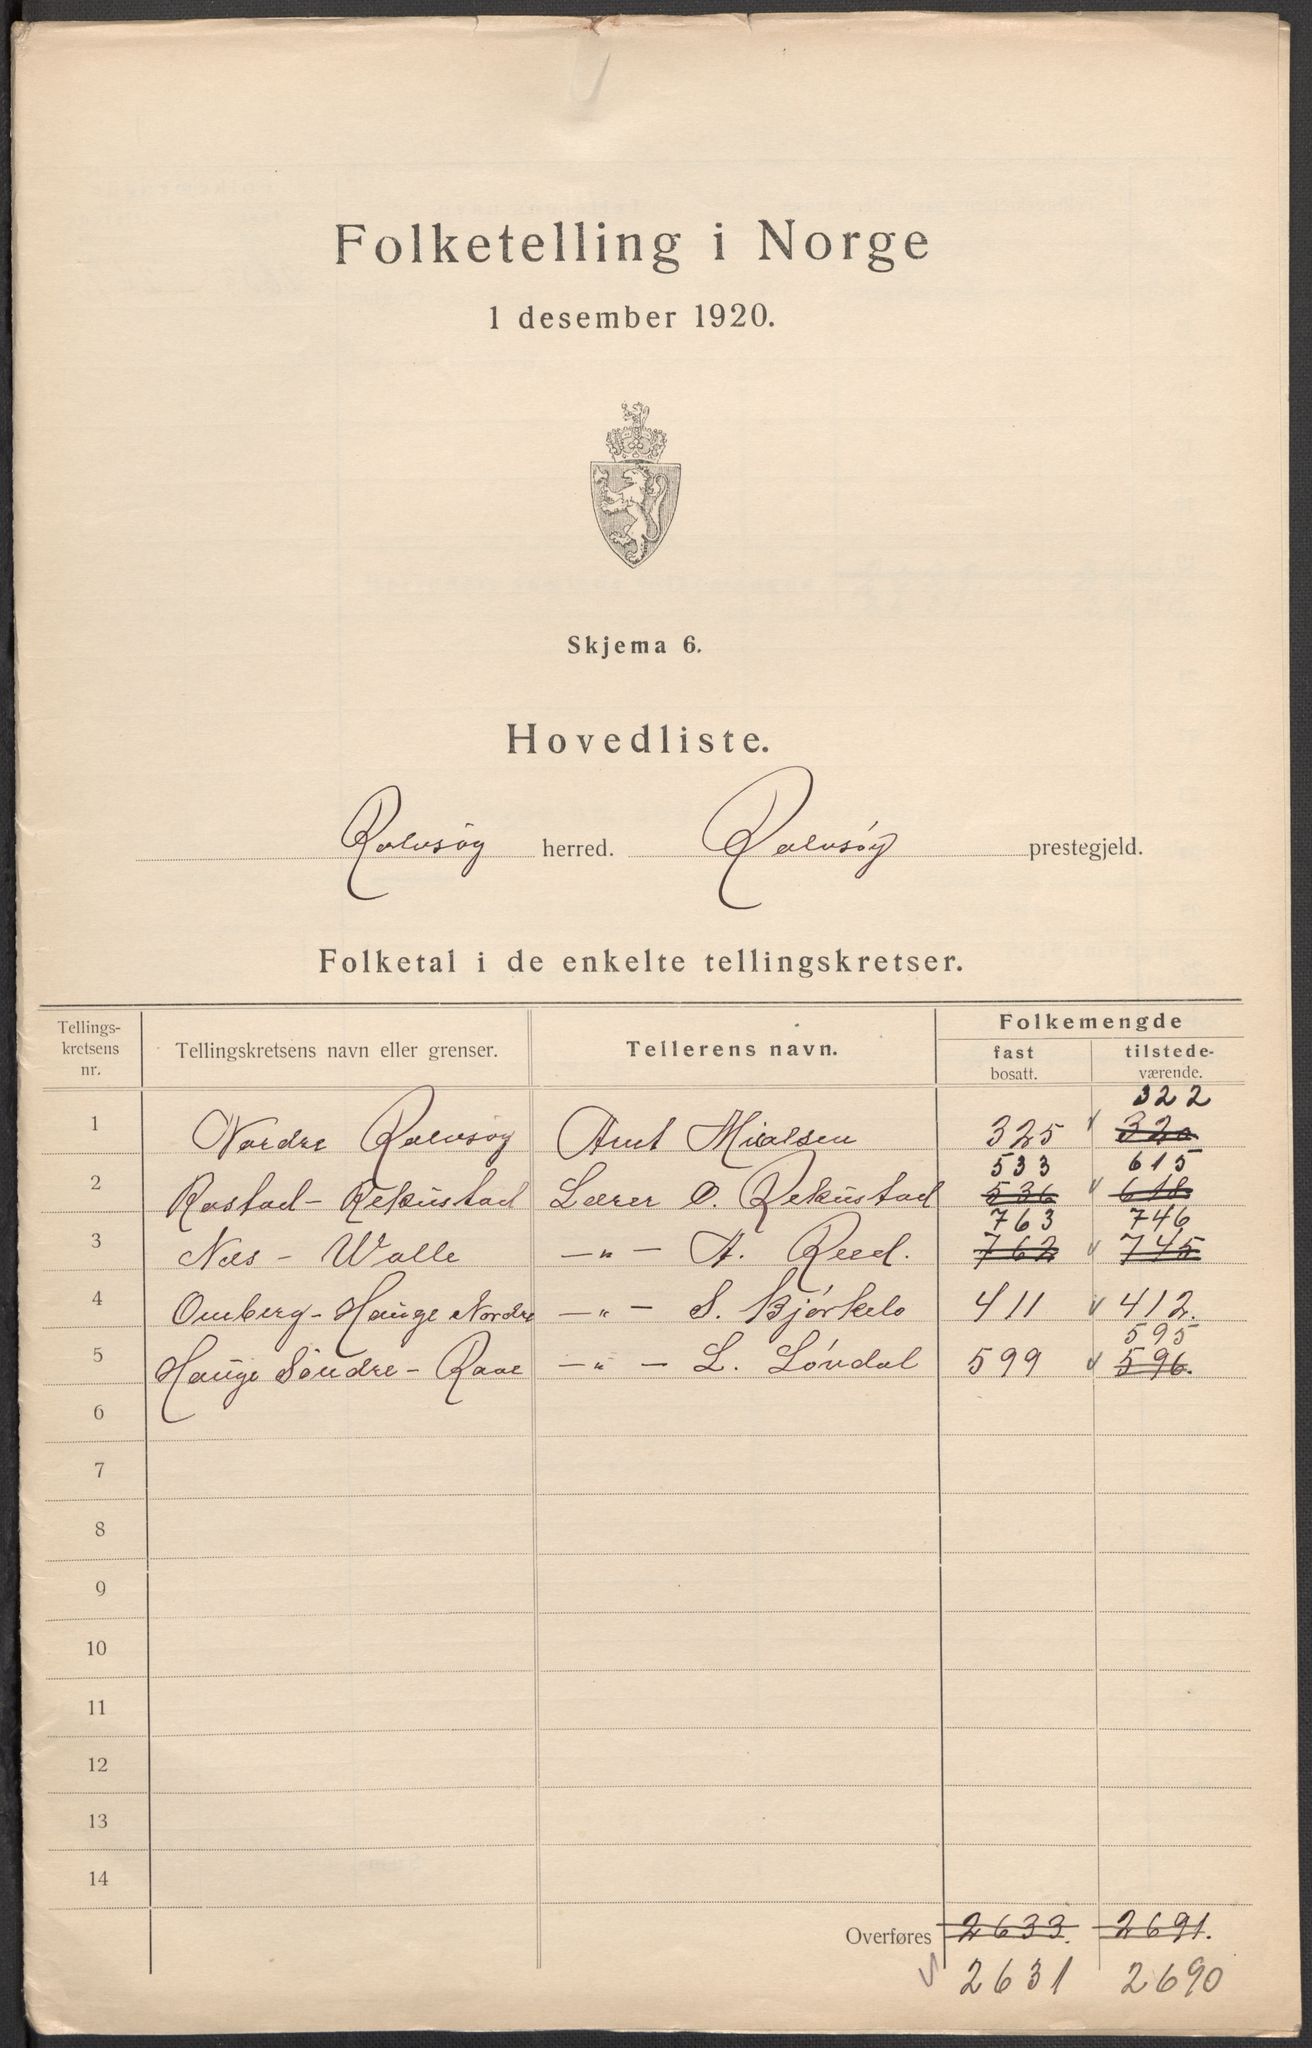 Folketelling i Norge
1 desember 1920.
Skjema 6.
Hovedliste.
Rolvsøy herred. Rolvsøy prestegjeld.
Folketal i de enkelte tellingskretser.
Tellings-
kretsens
nr.
Tellingskretsens navn eller grenser.
Tellerens navn.
Folkemengde
fast
bosatt.
tilstede-
værende.
322
1 Nordre Rolvsøy Arnt 325 320
533 615
2 Rostad - Rekustad Lærer O. Rekustad 536 618
763 746
3 Nes - Walle —"— A. Reed. 762 745
4 Omberg - Hauge Nordre —"— S. Bjørkelo 411 412.
595
5 Hauge Søndre - Raae —"— L. Løvdal 599 596.
6
7
8
9
10
11
12
13
14
Overføres 2633. 2691.
2631 2690